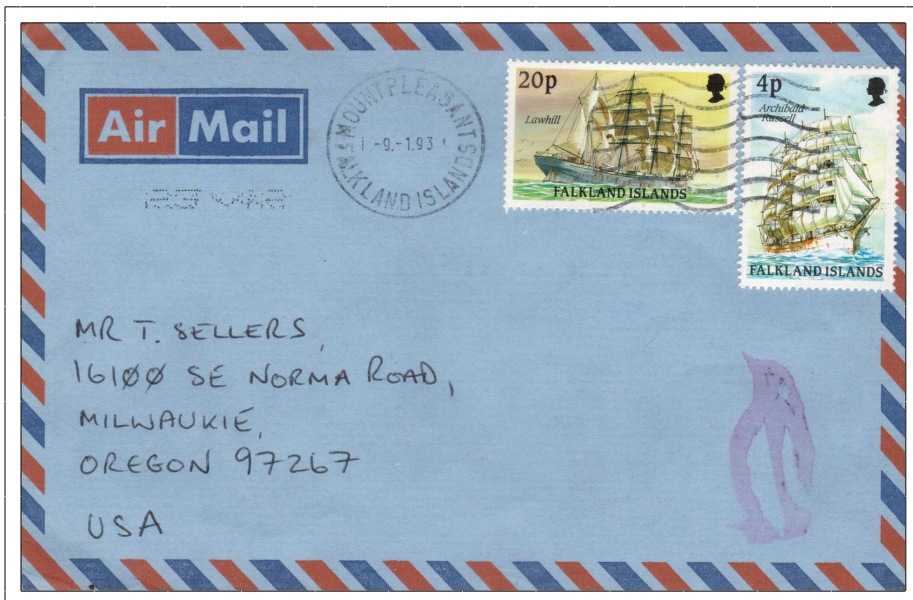 Air Mail
MOUNT PLEASANT
-9.-1.93
FALKLAND ISLANDS
20p
Lawhill
FALKLAND ISLANDS
4p
Archibald
Russell
FALKLAND ISLANDS
MR T. SELLERS,
16100 SE NORMA ROAD,
MILWAUKIE,
OREGON 97267
USA